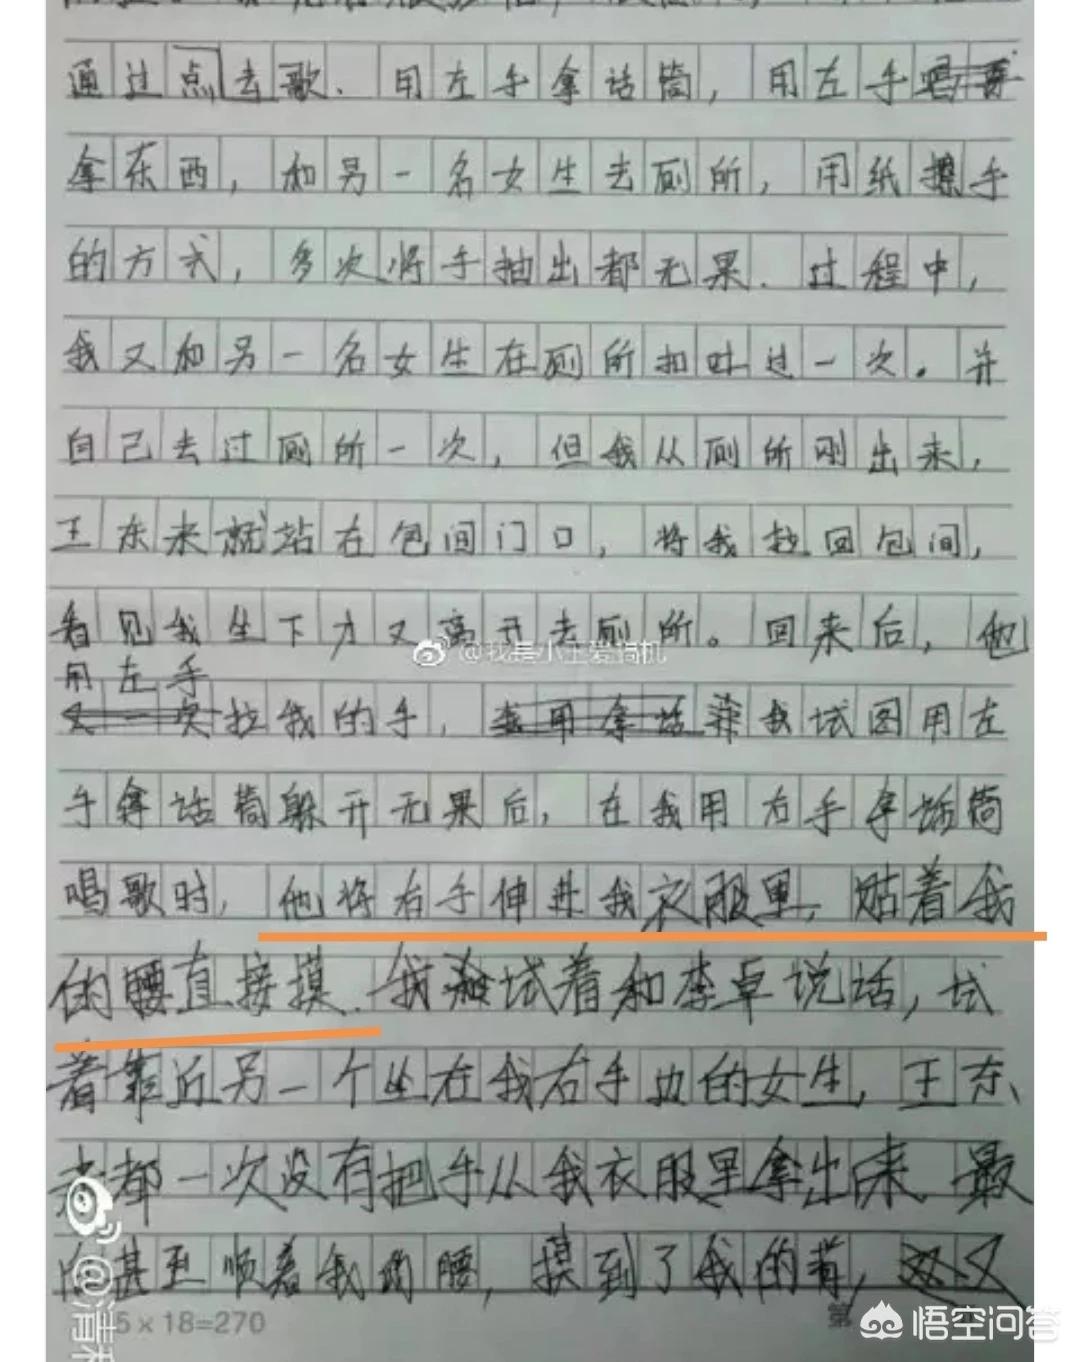 通过点去歌.用左手拿话筒,用左手
拿东西,和另一名女生去厕所,用纸擦手
的方式,多次将手抽出都无果.过程中,
我又和另一名女生在厕所扣吐过一次。并
自己去过厕所一次,但我从厕所刚出来,
王东来就站在包间门口,将我拉回包间,
看见我坐下才又离开去厕所。回来后,他
@我是小王爱搞机
用左手
又一次拉我的手,我用拿话并我试图用左
手拿话筒躲开无果后,在我用右手拿话筒
唱歌时,他将右手伸进我衣服里,贴着我
的腰直接摸.我试着和李卓说话,试
着靠近另一个坐在我右手边的女生,王东
都一次没有把手从我衣服里拿出来.最
甚至顺着我的腰,摸到了我的背,
5×18=270
第
悟空问答
@清